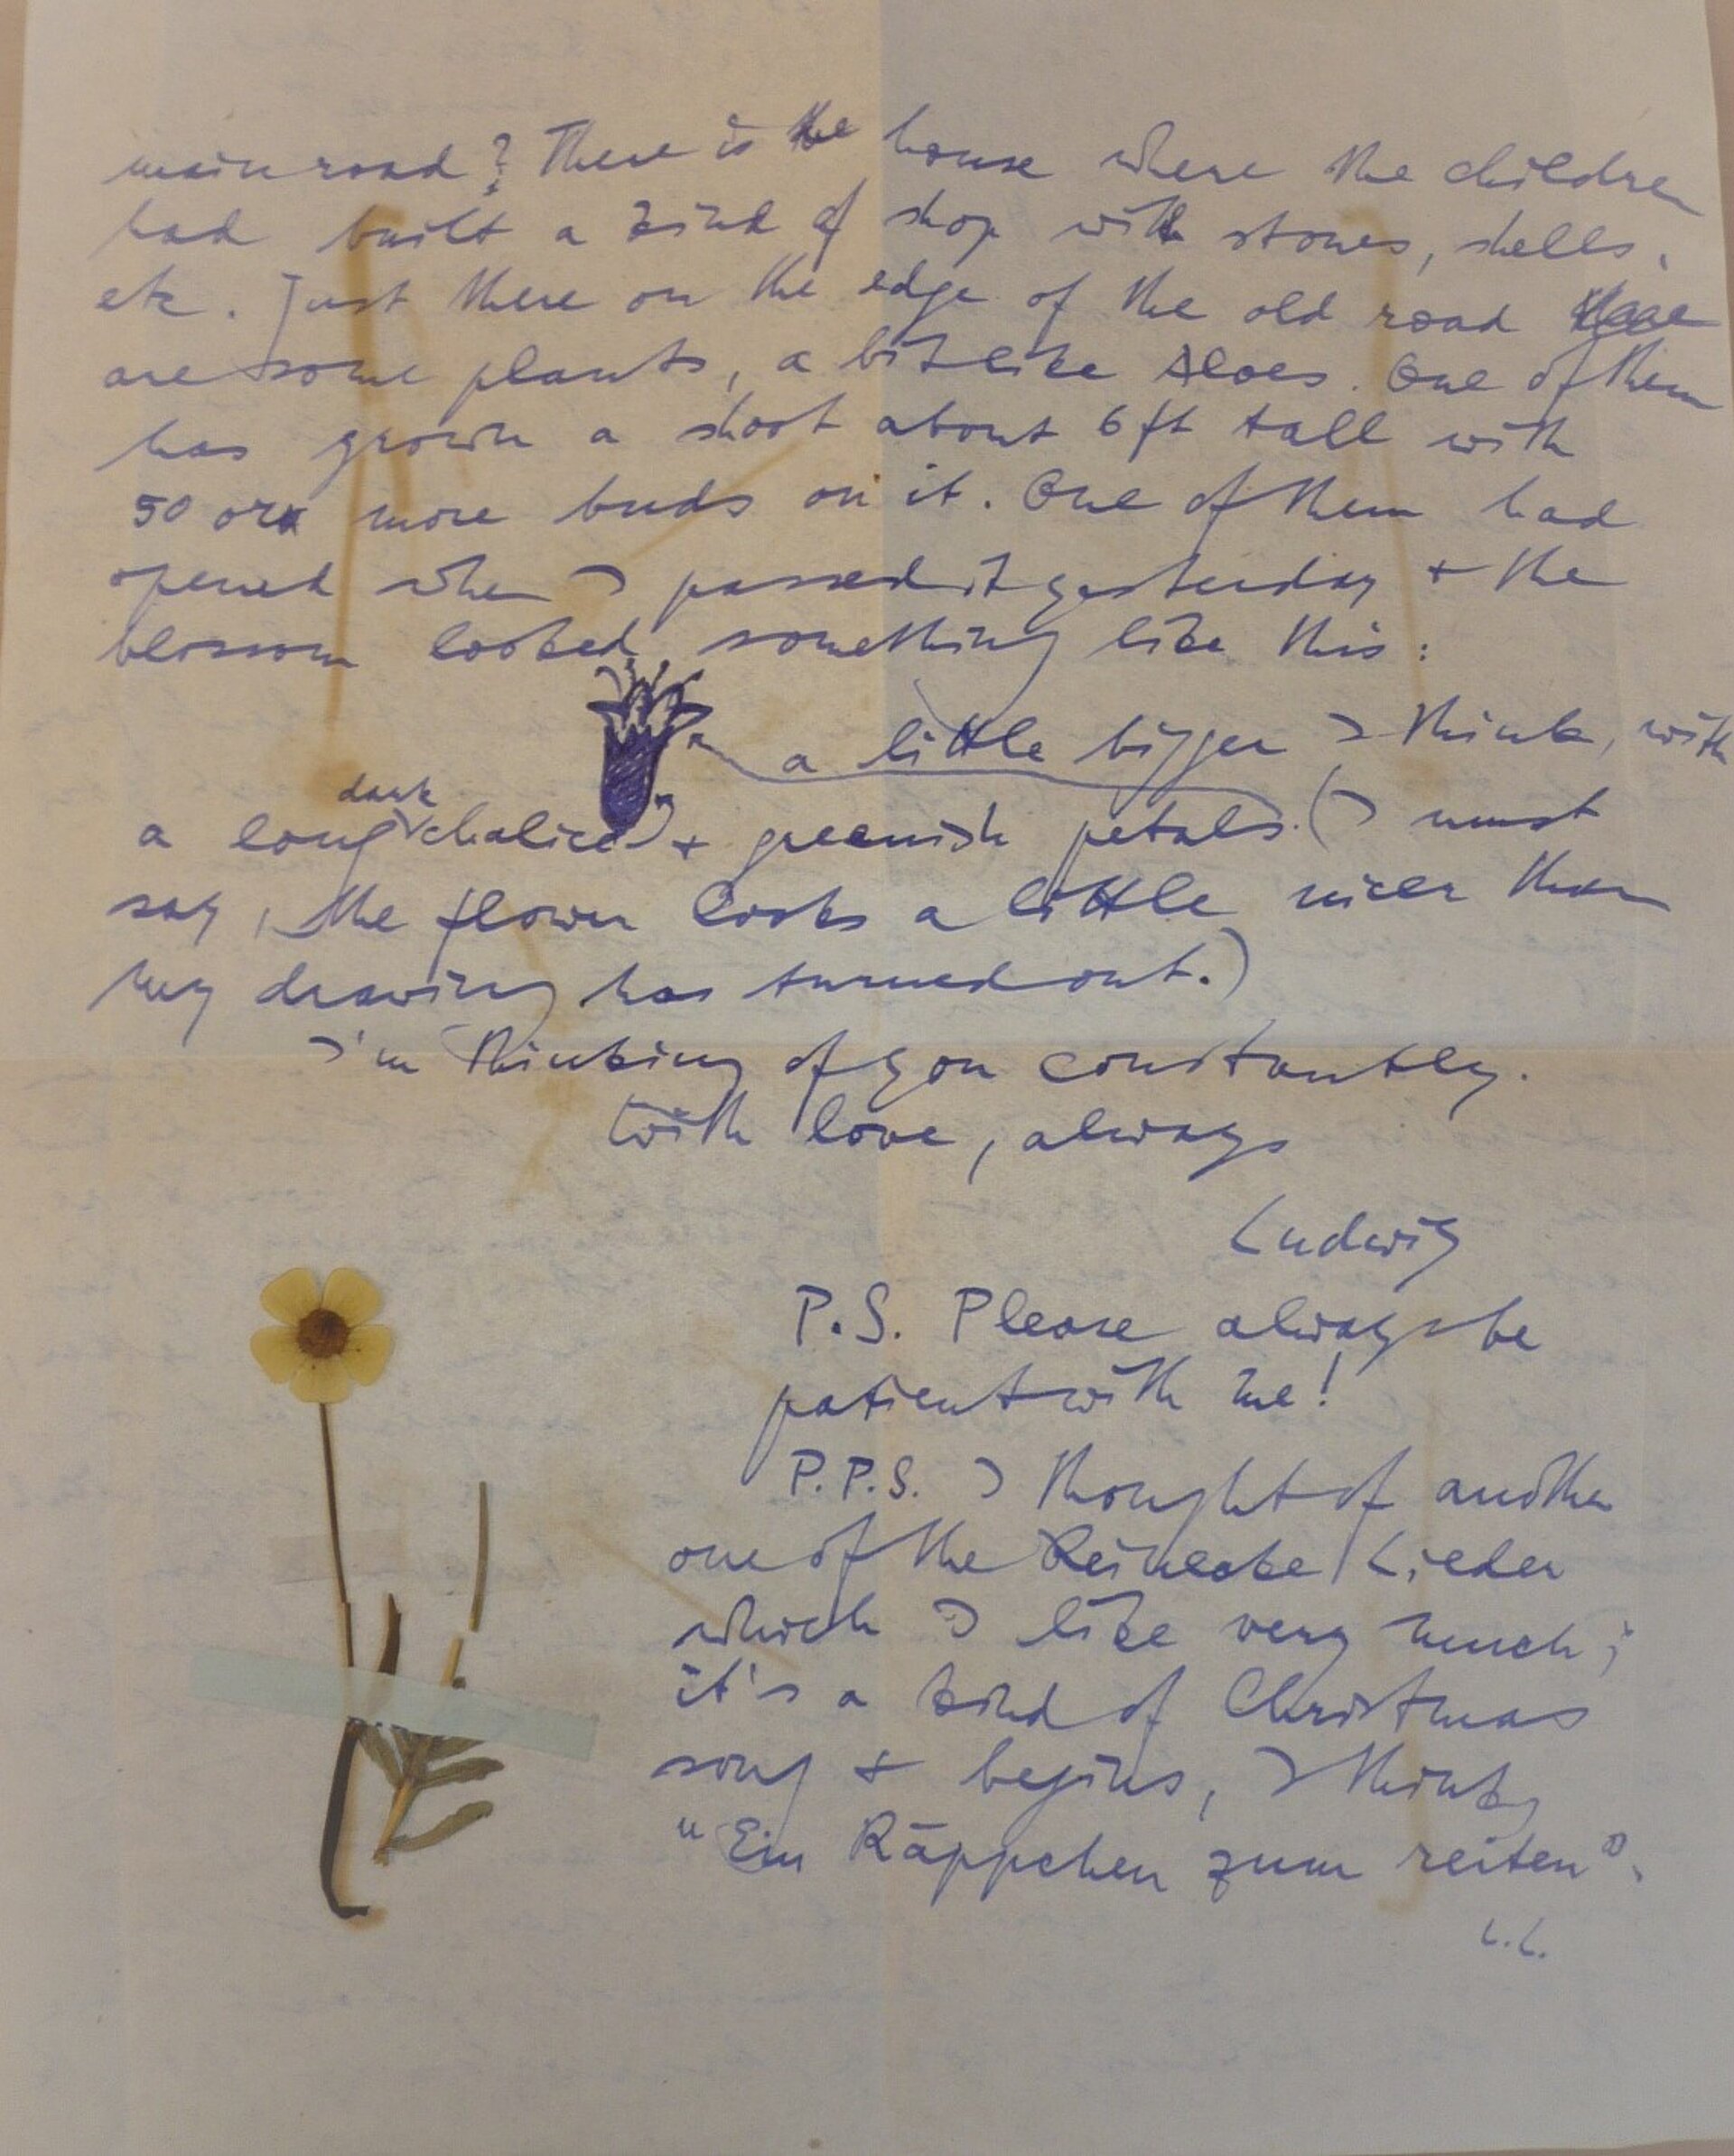 main road? There is the house where the children
had built a kind of shop with stones, shells,
etc. Just there on the edge of the old road there
are some plants, a bit like Aloes. One of them
has grown a shoot about 6 ft tall with
50 or more buds on it. One of them had
opened when I passed it yesterday + the
blossom looked something like this:
a little bigger I think, with
a long dark chalice + greenish petals. (I must
say, the flower looks a little nicer than
my drawing has turned out.)
I'm thinking of you constantly.
With love, always
Ludwig
P.S. Please always be
patient with me!
P.P.S. I thought of another
one of the Reinecke Lieder
which I like very much;
it's a kind of Christmas
song + begins, I think,
"Ein Räppchen zum reiten".
L.L.